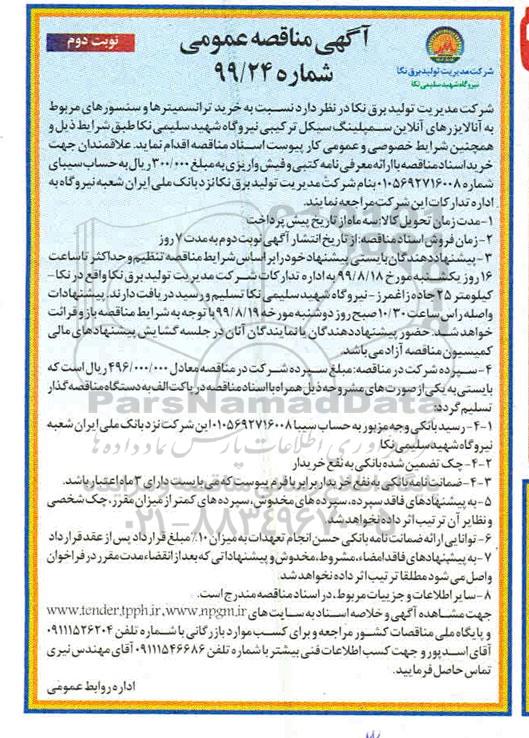 آگهی مناقصه عمومی
نوبت دوم
شماره ۹۹/۲۴
شرکت مدیریت تولید برق نکا
نیروگاه شهید سلیمی نکا
شرکت مدیریت تولید برق نکا در نظر دارد نسبت به خرید ترانسمیترها و سنسورهای مربوط
به آنالایزرهای آنلاین سمپلینگ سیکل ترکیبی نیروگاه شهید سلیمی نکا طبق شرایط ذیل و
همچنین شرایط خصوصی و عمومی کار پیوست اسناد مناقصه اقدام نماید. علاقمندان جهت
خرید اسناد مناقصه با ارائه معرفی نامه کتبی و فیش واریزی به مبلغ ۳۰۰/۰۰۰ ریال به حساب سیبای
شماره ۰۱۰۵۶۹۲۷۱۶۰۰۸ بنام شرکت مدیریت تولید برق نکا نزد بانک ملی ایران شعبه نیروگاه به
اداره تدارکات این شرکت مراجعه نمایند.
۱-مدت زمان تحویل کالا: سه ماه از تاریخ پیش پرداخت
۲- زمان فروش اسناد مناقصه: از تاریخ انتشار آگهی نوبت دوم به مدت ۷ روز
۳- پیشنهاد دهندگان بایستی پیشنهاد خود را بر اساس شرایط مناقصه تنظیم و حداکثر تا ساعت
۱۶ روز یکشنبه مورخ ۹۹/۸/۱۸ به اداره تدارکات شرکت مدیریت تولید برق نکا واقع در نکا-
کیلومتر ۲۵ جاده زاغمرز- نیروگاه شهید سلیمی نکا تسلیم و رسید دریافت دارند. پیشنهادات
واصله راس ساعت ۱۰/۳۰ صبح روز دوشنبه مورخه ۹۹/۸/۱۹ با توجه به شرایط مناقصه باز و قرائت
خواهد شد. حضور پیشنهاد دهندگان یا نمایندگان آنان در جلسه گشایش پیشنهادهای مالی
کمیسیون مناقصه آزاد می باشد.
۴- سپرده شرکت در مناقصه: مبلغ سپرده شرکت در مناقصه معادل ۴۹۶/۰۰۰/۰۰۰ ریال است که
بایستی به یکی از صورت های مشروحه ذیل همراه با اسناد مناقصه در پاکت الف به دستگاه مناقصه گذار
تسلیم گردد:
۴-۱- رسید بانکی وجه مزبور به حساب سیبا ۰۱۰۵۶۹۲۷۱۶۰۰۸ این شرکت نزد بانک ملی ایران شعبه
نیروگاه شهید سلیمی نکا
۴-۲- چک تضمین شده بانکی به نفع خریدار
۴-۳- ضمانت نامه بانکی به نفع خریدار برابر با فرم پیوست که می بایست دارای ۳ ماه اعتبار باشد.
۵- به پیشنهادهای فاقد سپرده، سپرده های مخدوش، سپرده های کمتر از میزان مقرر، چک شخصی
و نظایر آن ترتیب اثر داده نخواهد شد.
۶- توانایی ارائه ضمانت نامه بانکی حسن انجام تعهدات به میزان ۱۰٪ مبلغ قرارداد پس از عقد قرارداد
۷- به پیشنهادهای فاقد امضاء، مشروط، مخدوش و پیشنهاداتی که بعد از انقضاء مدت مقرر در فراخوان
واصل می شود مطلقا ترتیب اثر داده نخواهد شد.
۸- سایر اطلاعات و جزییات مربوط، در اسناد مناقصه مندرج است.
جهت مشاهده آگهی و خلاصه اسناد به سایت های www.tender.tpph.ir، www.npgm.ir
و پایگاه ملی مناقصات کشور مراجعه و برای کسب موارد بازرگانی با شماره تلفن ۰۹۱۱۱۵۲۶۲۰۴
آقای اسدپور و جهت کسب اطلاعات فنی بیشتر با شماره تلفن ۰۹۱۱۱۵۴۶۶۸۶ آقای مهندس نیری
تماس حاصل فرمایید.
اداره روابط عمومی
ParsNamadData
۰۲۱-۸۸۳۴۹۶۷۰